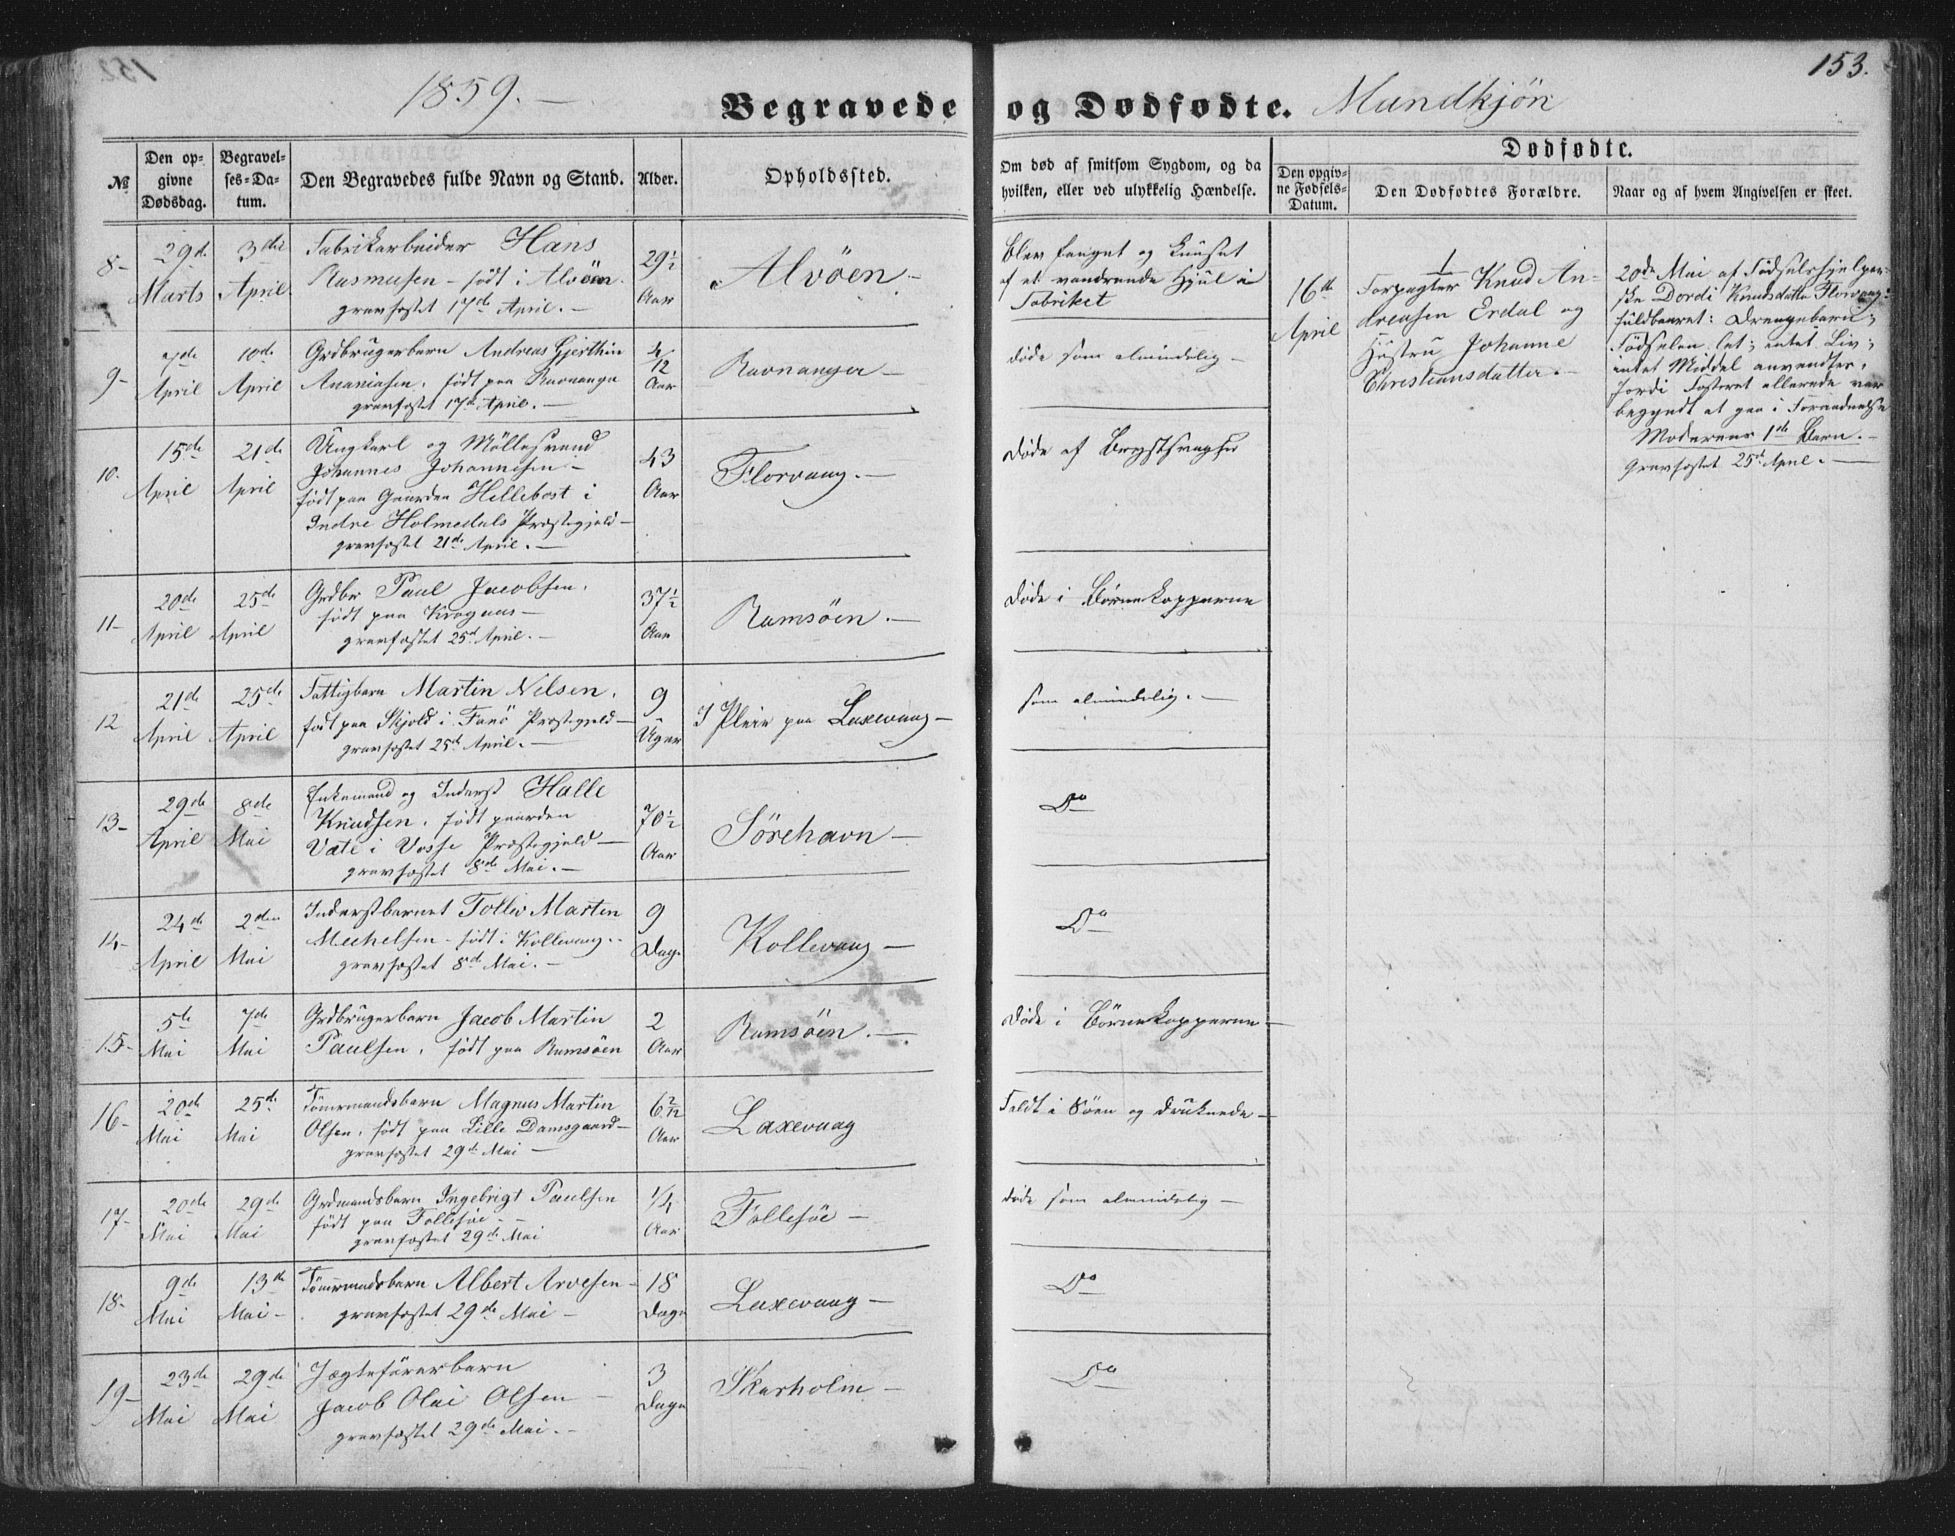 153.
1859. —
Begravede og Dødfødte. Mandkjön
№
Den opgivne Dødsdag.
Begravelses-Datum.
Den Begravedes fulde Navn og Stand.
Alder.
Opholdssted.
Om død af smitsom Sygdom, og da hvilken, eller ved ulykkelig Hændelse.
Dødfødte.
Den opgivne Fødsels-Datum.
Den Dødfødtes Forældre.
Naar og af hvem Angivelsen er skeet.
8-
29d Marts
3die April
Fabrikarbeider Hans
Rasmusen - født i Alvöen.
gravfæstet 17de April. —
29½ Aar
Alvöen -
blev fanget og knuset
af et vandrende Hjul i
Fabriket
9-
7de April
10de April
Grdbrugerbarn Andreas Gjerthin
Ananiasen, født paa Ravnanger
gravfæstet 17de April. —
4/12 Aar
Ravnanger —
døde som almindelig —
10.
15de April
21de April
Ungkarl og Möllesvend
Johannes Johannesen —
født paa Gaarden Hellebost i
Indre Holmedals Præstegjeld —
gravfæstet 21de April. —
43 Aar
Florvaag. —
døde af Brystsvaghed
11-
20de April
25de April
Grdbr Paul Jacobsen,
født paa Krognes —
gravfæstet 25d April. —
37½ Aar
Ramsöen. —
døde i Børnekopperne
12
21de April
25de April
Fattigbarn Martin Nilsen,
født paa Skjold i Fanö Præstegjeld —
gravfæstet 25d April. —
9 Uger
I Pleie paa Laxevaag —
som almindelig. —
13-
29de April
8de Mai
Enkemand og Inderst Halle
Knudsen, født paa Gaarden
Væte i Vosse Præstegjeld —
gravfæstet 8de Mai. —
70½ Aar
Sörehavn —
Do
14-
24de April
2den Mai
Inderstbarnet Tollev Martin
Mechelsen - født i Kollevaag. -
gravfæstet 8d Mai. —
9 Dage
Kollevaag —
Do
15-
5te Mai
7de Mai
Grdbrugerbarn Jacob Martin
Paulsen, født paa Ramsöen
2 Aar
Ramsöen. —
døde i Börnekopperne —
16-
20de Mai
25de Mai
Tömmermandsbarn Magnus Martin
Olsen, født paa Lille Damsgaard —
gravfæstet 29de Mai —
6 2/12 Aar
Laxevaag
Faldt i Söen og druknede —
17-
20de Mai
29de Mai
Grdmandsbarn Ingebrigt Paulsen
født paa Follesöe. —
gravfæstet 29de Mai
1/4 Aar
Follesöe —
døde som almindelig —
18-
9de Mai
13de Mai -
Tömmermandsbarn Albert Arvesen —
gravfæstet 29de Mai —
18 Dage
Laxevaag —
Do
19-
23de Mai
29de Mai
Jægteförerbarn
Jacob Olai Olsen —
gravfæstet 29de Mai. —
3 Dage
Skarholm —
Do
16de April
1
Forpagter Knud An-
dreasen Erdal og
Hustru Johanne
Christiansdatter. —
20de Mai af Fødselshjelper-
ske Dordi Knudsdatter Florvaag:
fuldbaaret: Drengebarn;
Fødselen let; intet Liv;
intet Middel anvendtes,
fordi Fosteret allerede var
begyndt at gaa i Forraadnelse
Moderens 1ste Barn. —
Gravfæstet 25d April. —